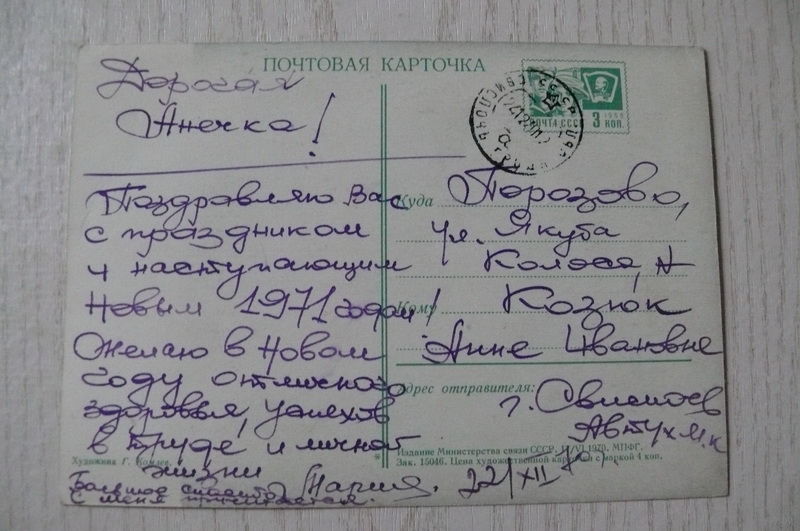 ПОЧТОВАЯ КАРТОЧКА
Дорогая
Анечка!
Поздравляю Вас
с праздником
и наступающим
Новым 1971 годом!
Желаю в Новом
году отличного
здоровья, успехов
в труде и личной
жизни
Мария.
Большое спасибо
с меня причитается.
22/XII
ПОЧТА СССР
1966
3 КОП.
Куда Порозово,
ул. Якуба
Коласа,
Кому Козюк
Анне Ивановне
Адрес отправителя:
г. Свислочь
Автух М.К
Художник Г. Комлев
Издание Министерства связи СССР. 1/VI 1970. МПФГ.
Зак. 15046. Цена художественной карточки с маркой 4 коп.